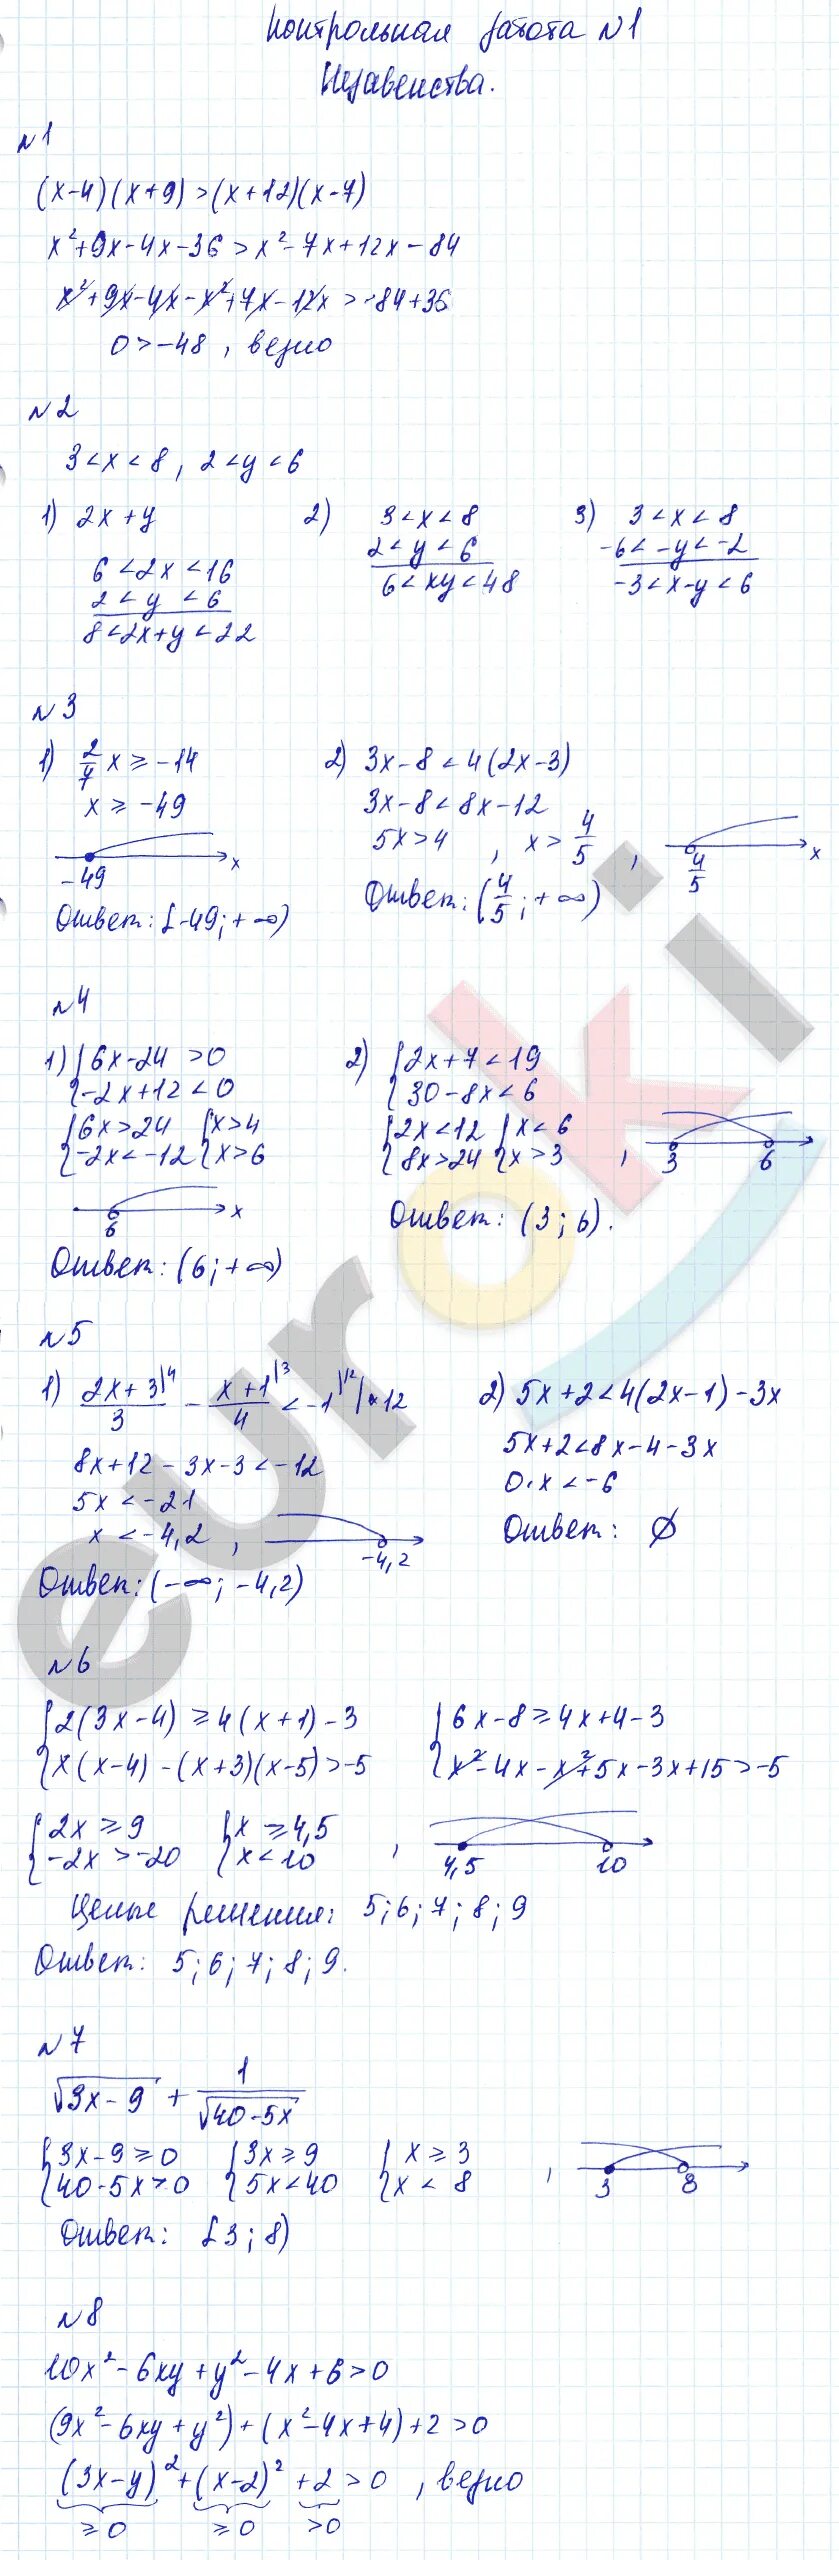 Контрольная работа №1
Неравенства.
№1
(x-4)(x+9)>(x+12)(x-7)
x²+9x-4x-36>x²-7x+12x-84
x²+9x-4x-x²+7x-12x>-84+36
0>-48, верно
№2
3<x<8, 2<y<6
1) 2x+y
6<2x<16
2<y<6
8<2x+y<22
2) 3<x<8
2<y<6
6<xy<48
3) 3<x<8
-6<-y<-2
-3<x-y<6
№3
1) 2/7 x ≥ -14
x ≥ -49
-49 x
Ответ: [-49; +∞)
2) 3x-8<4(2x-3)
3x-8<8x-12
5x>4, x>4/5,
4/5 x
Ответ: (4/5; +∞)
№4
1) {6x-24>0
{-2x+12<0
{6x>24 {x>4
{-2x<-12 {x>6
6 x
Ответ: (6; +∞)
2) {2x+7<19
{30-8x<6
{2x<12 {x<6
{8x>24 {x>3,
3 6
Ответ: (3; 6).
№5
1) (2x+3)/3 |4 - (x+1)/4 |3 < -1 |12 |·12
8x+12-3x-3<-12
5x<-21
x<-4,2,
-4,2
Ответ: (-∞; -4,2)
2) 5x+2<4(2x-1)-3x
5x+2<8x-4-3x
0·x<-6
Ответ: ∅
№6
{2(3x-4)≥4(x+1)-3 {6x-8≥4x+4-3
{x(x-4)-(x+3)(x-5)>-5 {x²-4x-x²+5x-3x+15>-5
{2x≥9 {x≥4,5
{-2x>-20 {x<10,
4,5 10
Целые решения: 5; 6; 7; 8; 9
Ответ: 5; 6; 7; 8; 9.
№7
√(3x-9) + 1/√(40-5x)
{3x-9≥0 {3x≥9 {x≥3
{40-5x>0 {5x<40 {x<8,
3 8
Ответ: [3; 8)
№8
10x²-6xy+y²-4x+6>0
(9x²-6xy+y²)+(x²-4x+4)+2>0
(3x-y)²+(x-2)²+2>0, верно
≥0 ≥0 >0
euroki